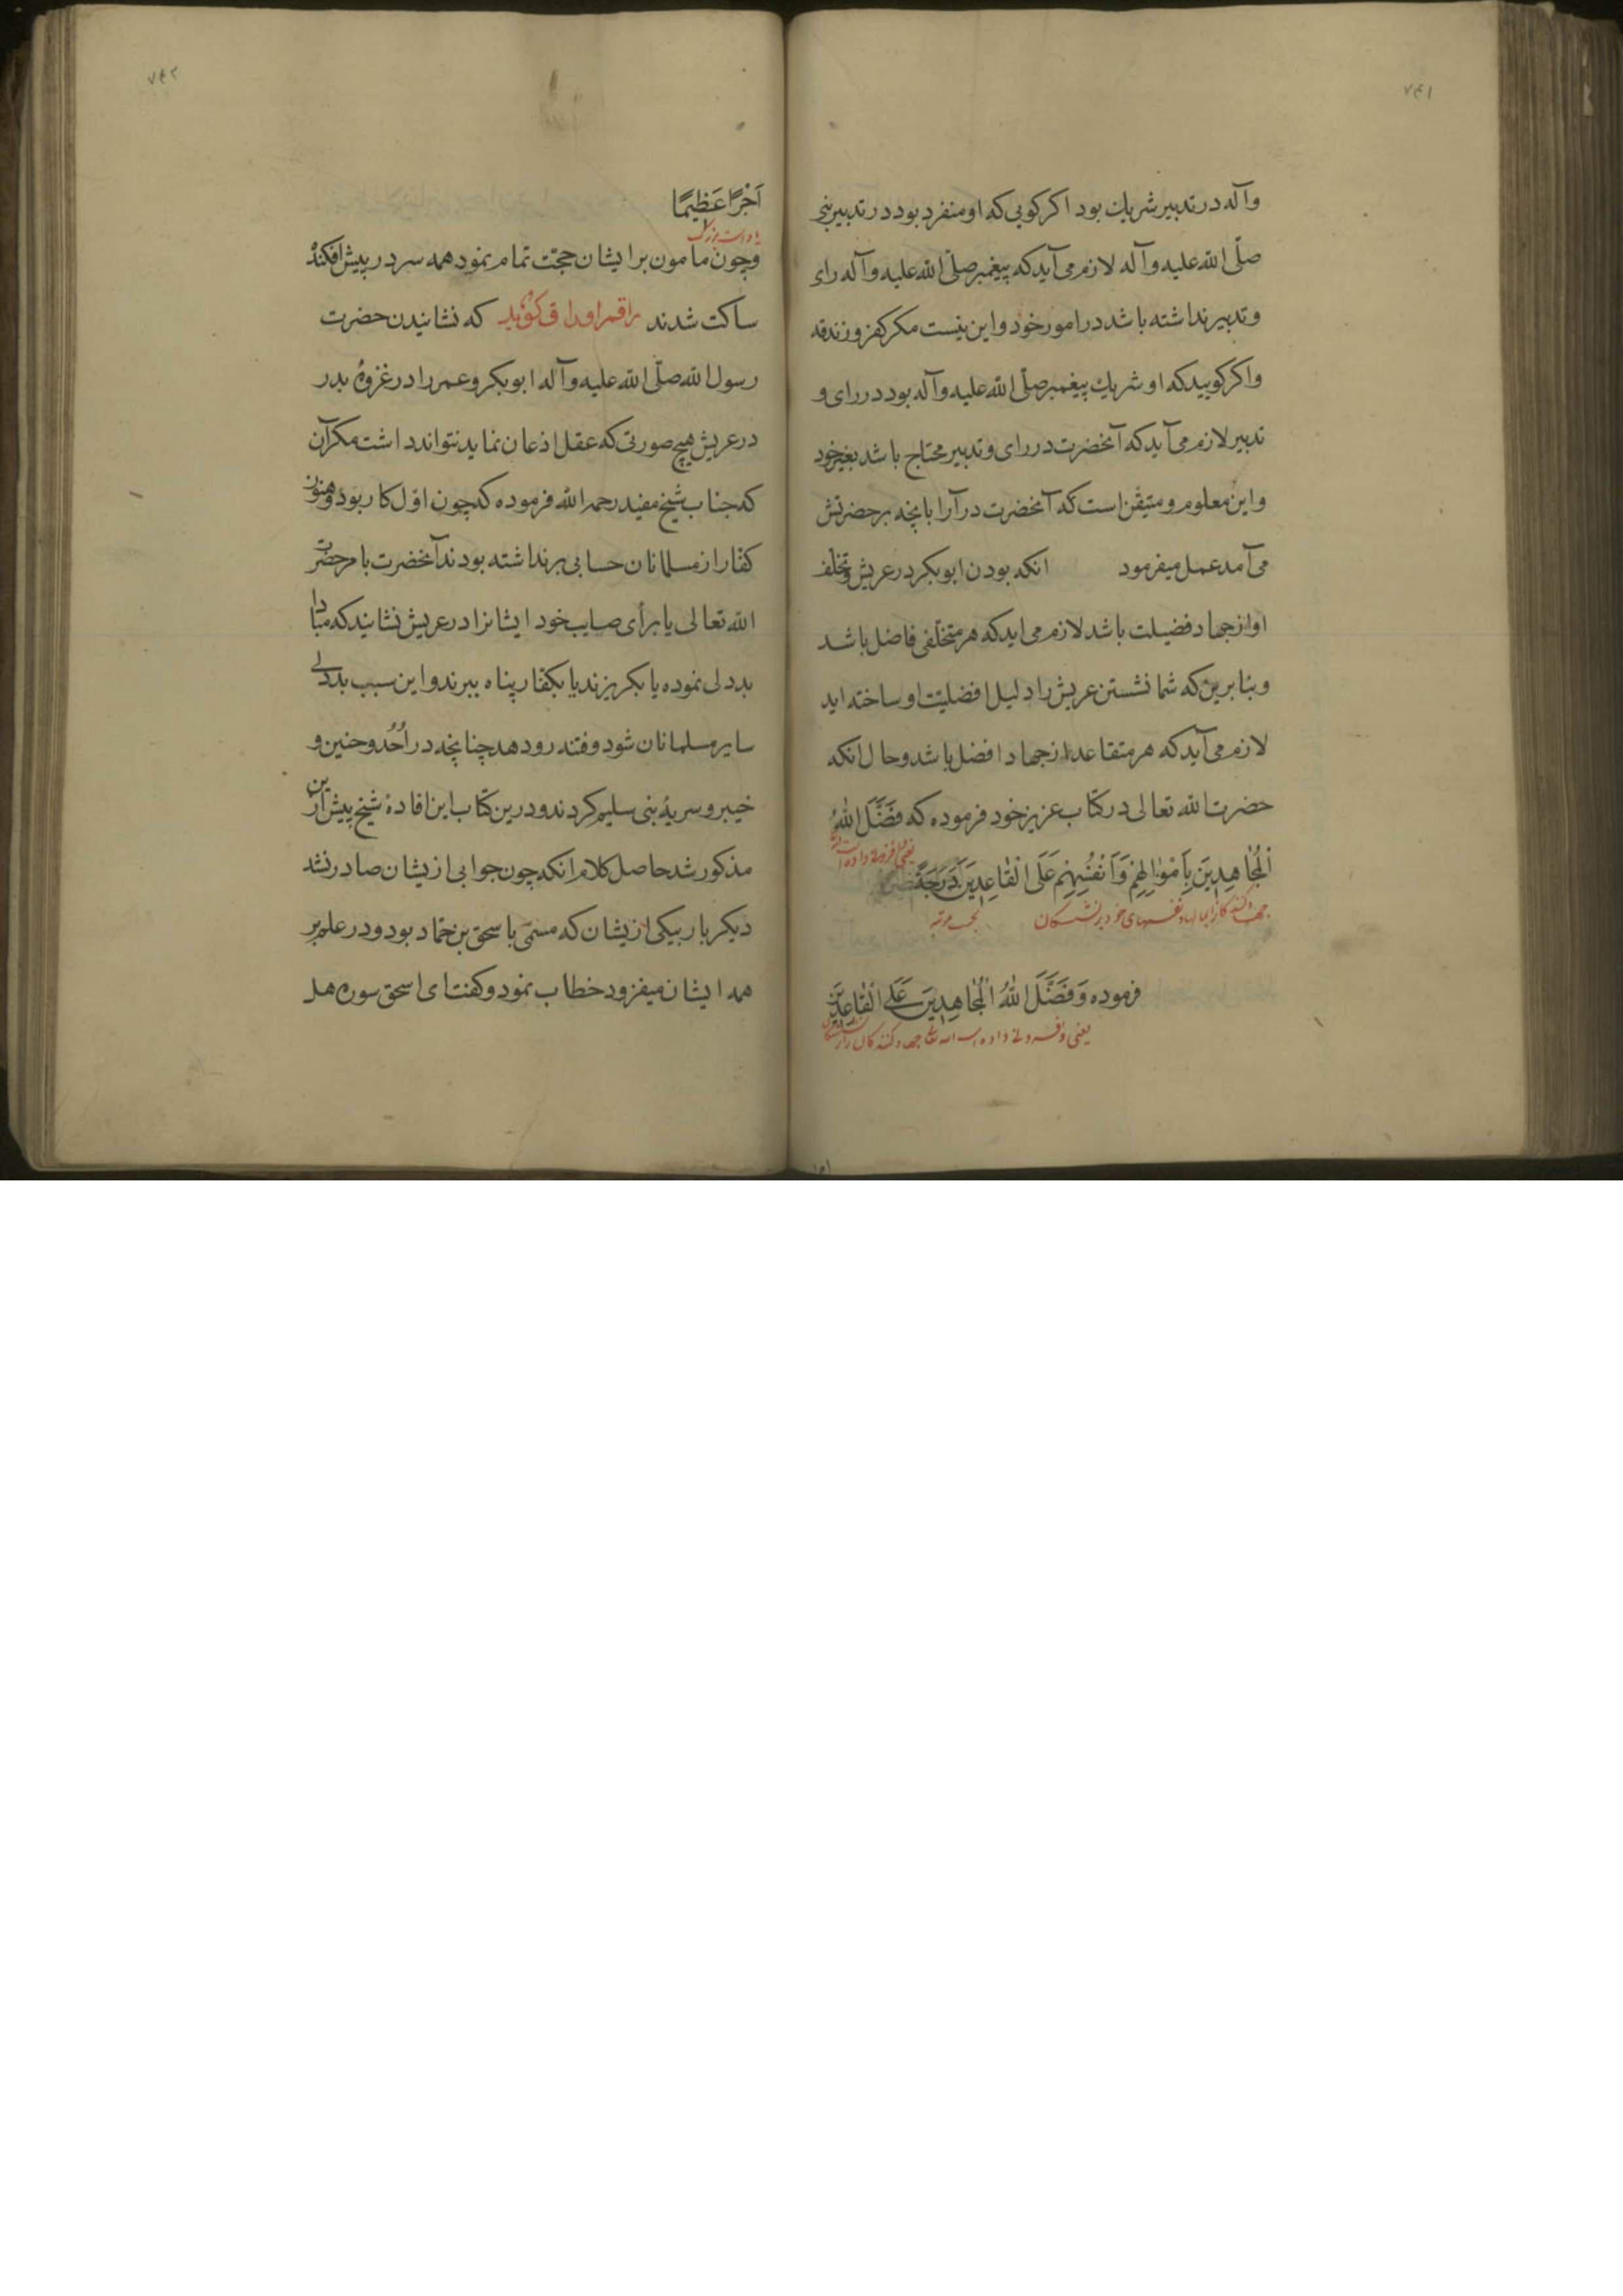 ۷۴۱
وآله در تدبیر شریك بود اکر کویی که او منفرد بود در تدبیر نبی
صلّی الله علیه وآله لازم می آید که پیغمبر صلّی الله علیه وآله رای
و تدبیر نداشته باشد در امور خود و این نیست مکر کفر و زندقه
و اکر کویید که او شریك پیغمبر صلّی الله علیه وآله بود در رای و
تدبیر لازم می آید که آنحضرت در رای و تدبیر محتاج باشد بغیر خود
و این معلوم و متیقّن است که آنحضرت در آرا بانچه بر حضرتش
می آمد عمل میفرمود انکه بودن ابوبکر در عریش و تخلف
او از جهاد فضیلت باشد لازم می اید که هر متخلّفی فاضل باشد
و بنابرین که شما نشستن عریش را دلیل افضلیّت او ساخته اید
لازم می آید که هر متقاعد از جهاد افضل باشد و حال انکه
حضرت الله تعالی در کتاب عزیز خود فرموده که فَضَّلَ اللهُ
یعنی داده
اَلْمُجَاهِدِینَ بِاَمْوَالِهِمْ وَاَنْفُسِهِمْ عَلَی الْقَاعِدِینَ دَرَجَةً
نفسهای خود بر نشستکان مرتبه
فرموده وَفَضَّلَ اللهُ اَلْمُجَاهِدِینَ عَلَی الْقَاعِدِینَ
یعنی و داده است الله تعالی جهاد کنندکان را بر
۷۴۲
اَجْرًا عَظِیمًا
بزرك
و چون مامون بر ایشان حجّت تمام نمود همه سر در پیش افکنده
ساکت شدند راقم اوراق کوید که نشانیدن حضرت
رسول الله صلّی الله علیه وآله ابوبکر و عمر را در غزوهٔ بدر
در عریش هیچ صورتی که عقل اذعان نماید نتواند داشت مکر آن
که جناب شیخ مفید رحمه الله فرموده که چون اوّل کار بود و هنوز
کفّار از مسلمانان حسابی برنداشته بودند آنحضرت بامر حضرت
الله تعالی یا برأی صایب خود ایشانرا در عریش نشانید که مبادا
بددلی نموده یا بکریزند یا بکفّار پناه ببرند و این سبب بددلی
سایر مسلمانان شود و فتنه رو دهد چنانچه در اُحُد و حنین و
خیبر و سریهٔ بنی سلیم کردند و درین کتاب این افادهٔ شیخ پیش ازین
مذکور شد حاصل کلام انکه چون جوابی از یشان صادر نشد
دیکر بار بیکی از یشان که مسمّی باسحق بن حمّاد بود و در علم بر
همه ایشان میفزود خطاب نمود و کفت ای اسحق سوره هل